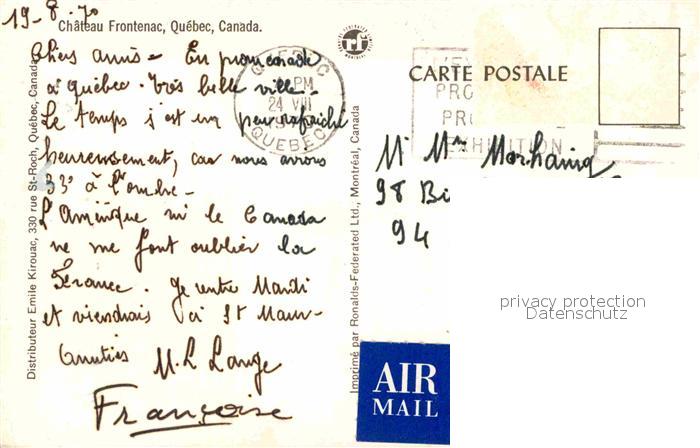 19-8-70
Château Frontenac, Québec, Canada.
Chers amis - En promenade
à Québec. Très belle ville.
Le temps s'est un peu rafraîchi
heureusement, car nous avions
33° à l'ombre -
L'Amérique ni le Canada
ne me font oublier la
France. Je rentre Mardi
et viendrais à St Maur -
Amitiés M. L Lange
Françoise
Distributeur Emile Kirouac, 330 rue St-Roch, Québec, Canada
Imprimé par Ronalds-Federated Ltd., Montréal, Canada
QUEBEC
PM
24 VIII
QUEBEC
CARTE POSTALE
PRO
PR
EXHIBITION
Mr Mme
98 Bi
94
privacy protection
Datenschutz
AIR
MAIL